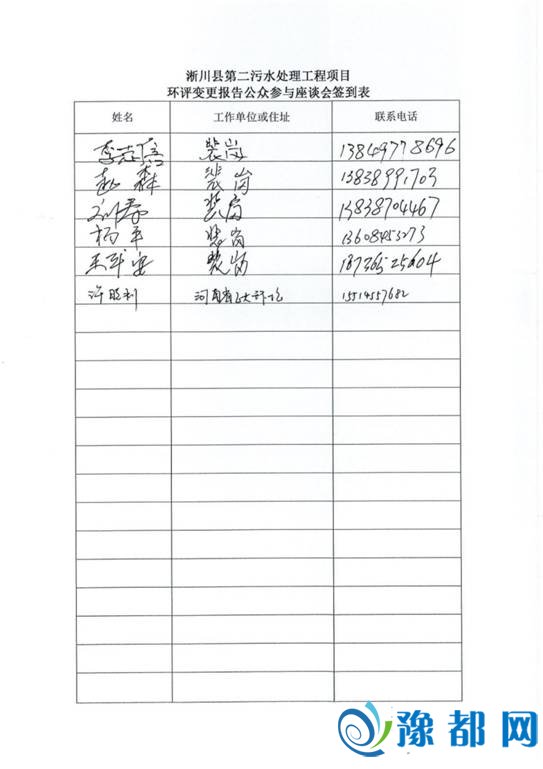 淅川县第二污水处理工程项目
环评变更报告公众参与座谈会签到表
姓名 工作单位或住址 联系电话
李志信 裴岗 13849778696
赵森 裴岗 13838991703
刘春 裴岗 13838704467
杨平 裴岗 13608453273
王军安 裴岗 18736525604
许胜利 河南省 15514557682
豫都网